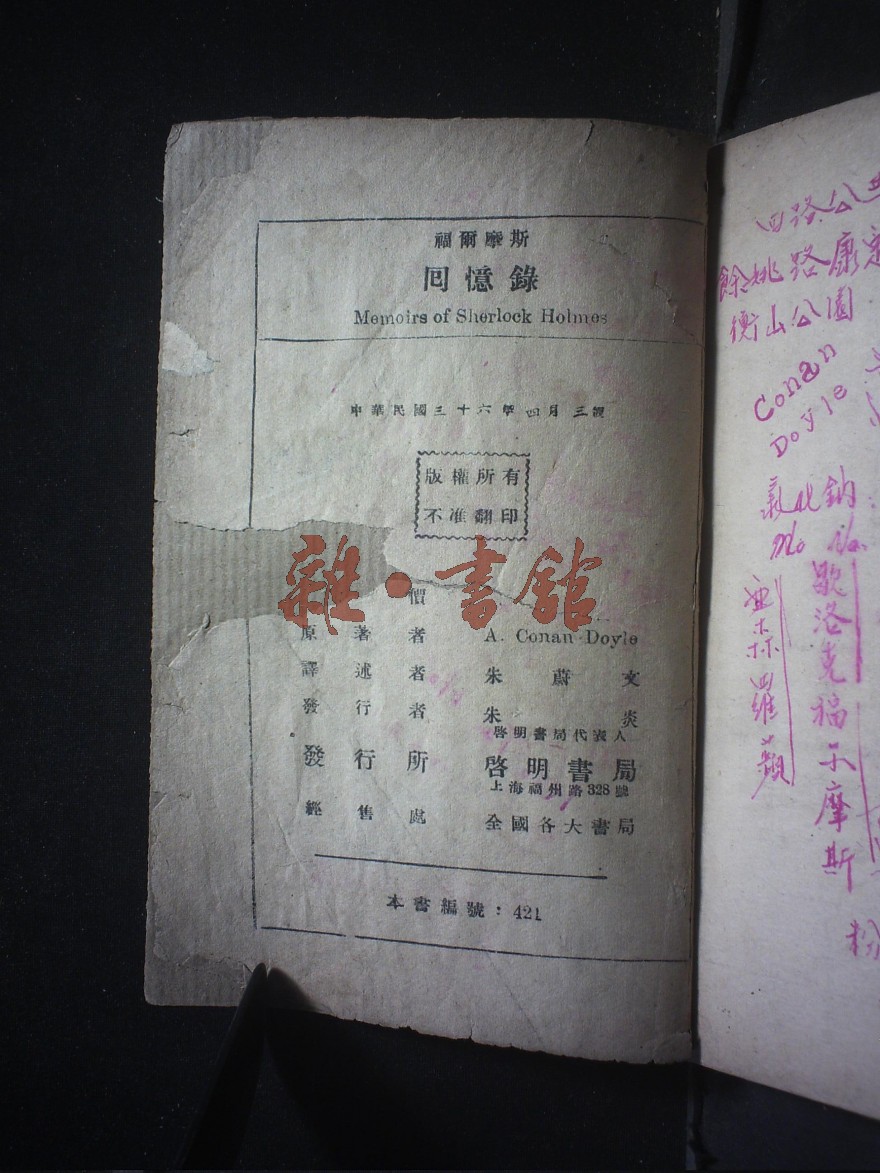 福爾摩斯
囘憶錄
Memoirs of Sherlock Holmes
中華民國三十六年四月三版
版權所有
不准翻印
雜·書館
價
原著者 A. Conan Doyle
譯述者 朱蔚文
發行者 朱炎
啓明書局代表人
發行所 啓明書局
上海福州路328號
經售處 全國各大書局
本書編號：421
四路公
餘姚路康
衡山公園
Conan
Doyle
氯化鈉
歇洛克福爾摩斯
亞森羅蘋
粉